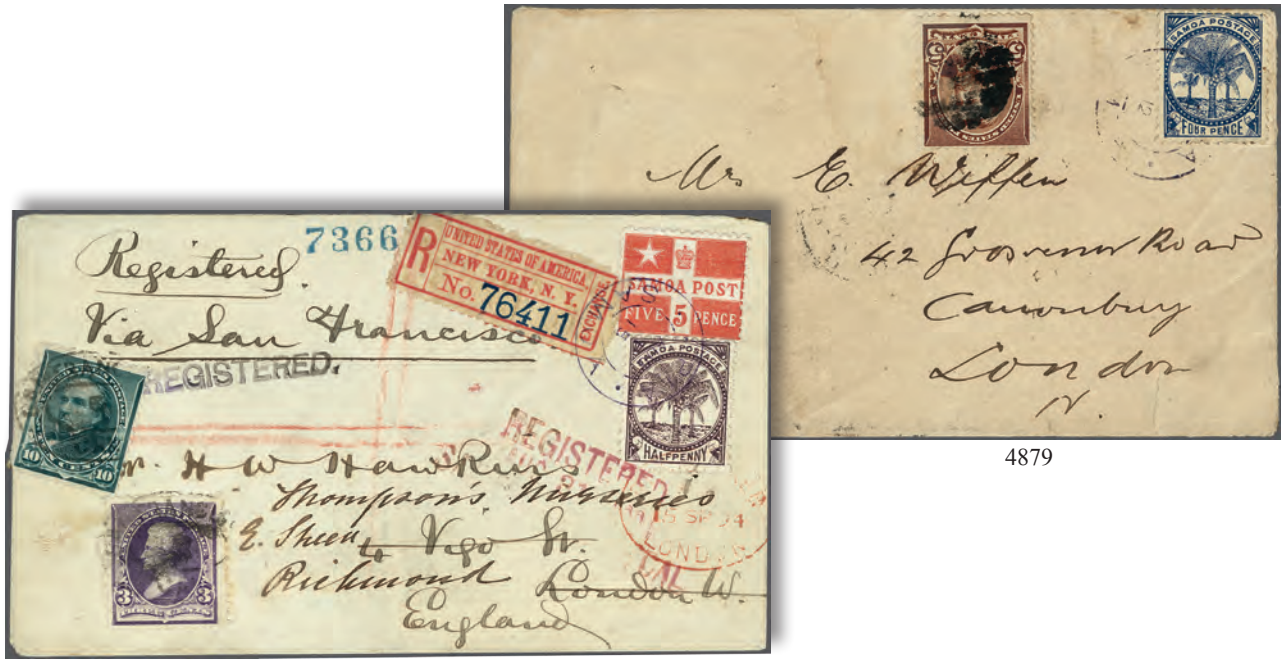 SAMOA POSTAGE
FOUR PENCE
5 5
Mrs E. Wiffen
42 Grosvenor Road
Canonbury
London
N.
4879
7366
Registered
Via San Francisco
R
UNITED STATES OF AMERICA.
NEW YORK, N. Y.
No. 76411
EXCHANGE
SAMOA POST
FIVE 5 PENCE
SAMOA POSTAGE
HALFPENNY
REGISTERED.
10 10
REGISTERED
H W Hawkins
Thompson's Nurseries
E. Sheen 4 Vigo St.
Richmond London W.
England
15 SP 94
LONDON
CAL
3 3